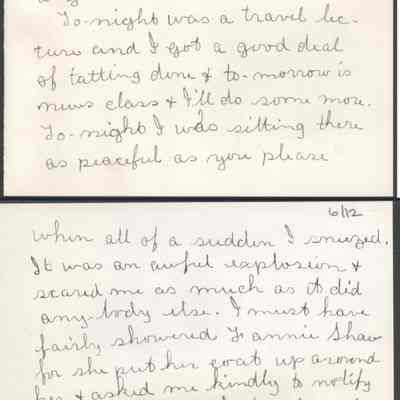 To-night was a travel lec-
ture and I got a good deal
of tatting done & to-morrow is
news class & I'll do some more.
To-night I was sitting there
as peaceful as you please
6/12
when all of a sudden I sneezed.
It was an awful explosion &
scared me as much as it did
any-body else. I must have
fairly showered Fannie Shaw
for she put her coat up around
her & asked me kindly to notify